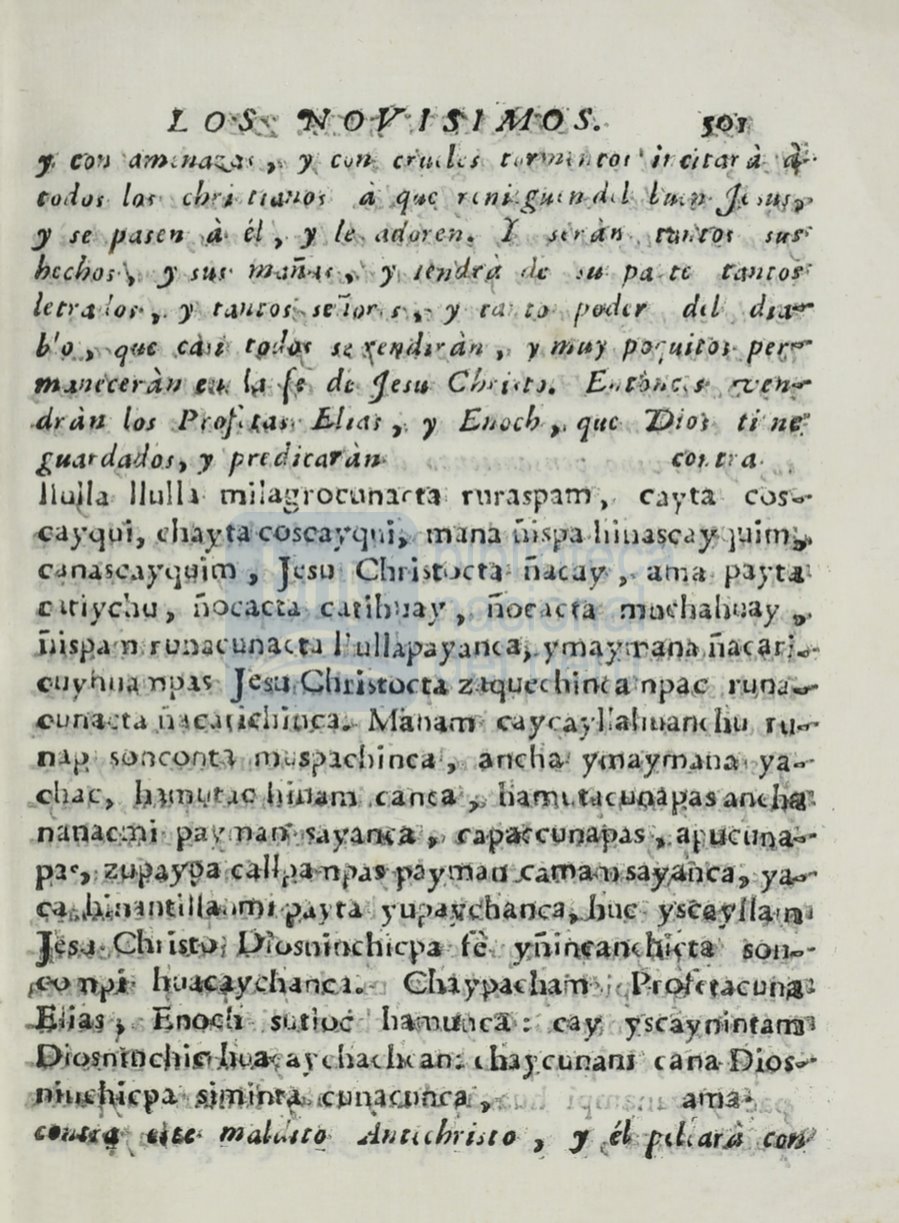 LOS NOVISIMOS. 501
y con amenazas, y con crueles tormentos incitarà à
todos los christianos à que renieguen del buen Jesus,
y se pasen à él, y le adoren. Y seràn tantos sus
hechos, y sus mañas, y tendrà de su parte tantos
letrados, y tantos señores, y tanto poder del dia-
blo, que casi todos se rendiràn, y muy poquitos per-
maneceràn en la fe de Jesu Christo. Entonces ven-
dràn los Profetas Elias, y Enoch, que Dios tiene
guardados, y predicaràn contra
llulla llulla milagrocunacta ruraspam, cayta cos-
cayqui, chayta coscayqui, mana ñispa hinascayquim,
canascayquim, Jesu Christocta ñacay, ama payta
catiychu, ñocacta catihuay, ñocacta muchahuay,
ñispam runacunacta llullapayanca, ymaymana ñacari-
cuyhuanpas Jesu Christocta zaquechincanpac runa-
cunacta ñacarichinca. Manam caycayllahuanchu ru-
nap sonconta muspachinca, ancha ymaymana ya-
chac, hamutac hinam canca, hamutacunapas ancha
nanacmi payman sayanca, capaccunapas, apucuna-
pas, zupaypa callpanpas payman caman sayanca, ya-
ca hinantillanmi payta yupaychanca, huc yscayllam
Jesu Christo Diosninchicpa fè yñincanchicta son-
conpi huacaychanca. Chaypacham Profetacuna
Elias, Enoch sutioc hamunca: cay yscaynintam
Diosninchic huacaychachcan: chaycunam cana Dios-
ninchicpa siminta cunacunca, ama
contra este maldito Antichristo, y él pelearà con